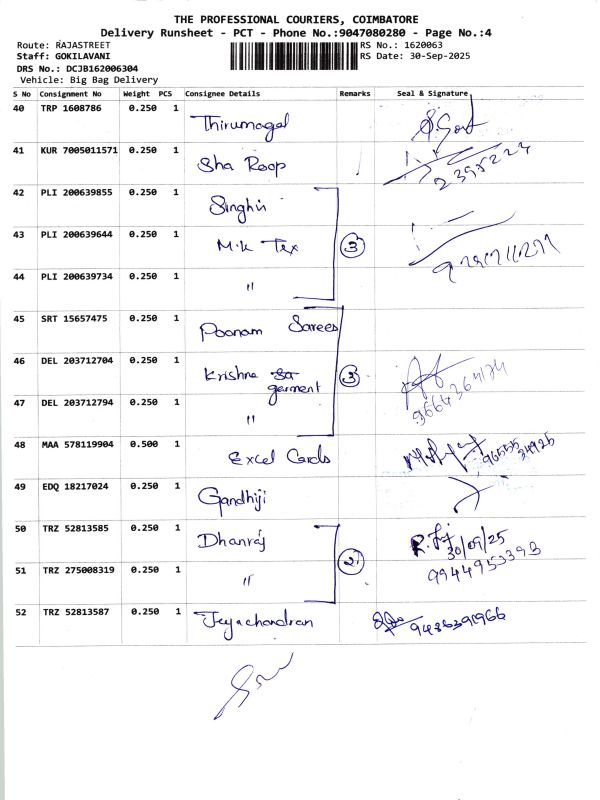 THE PROFESSIONAL COURIERS, COIMBATORE
Delivery Runsheet - PCT - Phone No.:9047080280 - Page No.:4
Route: RAJASTREET RS No.: 1620063
Staff: GOKILAVANI RS Date: 30-Sep-2025
DRS No.: DCJB162006304
Vehicle: Big Bag Delivery
S No Consignment No Weight PCS Consignee Details Remarks Seal & Signature
40 TRP 1608786 0.250 1 Thirumagal
41 KUR 7005011571 0.250 1 Sha Roop
42 PLI 200639855 0.250 1 Singhvi
43 PLI 200639644 0.250 1 M.k Tex 3
44 PLI 200639734 0.250 1 "
45 SRT 15657475 0.250 1 Poonam Sarees
46 DEL 203712704 0.250 1 Krishna garment 3
47 DEL 203712794 0.250 1 "
48 MAA 578119904 0.500 1 Excel Cards 96555 34925
49 EDQ 18217024 0.250 1 Gandhiji
50 TRZ 52813585 0.250 1 Dhanraj 30/09/25
51 TRZ 275008319 0.250 1 " 2 9944953393
52 TRZ 52813587 0.250 1 Jeyachandran 9486391966